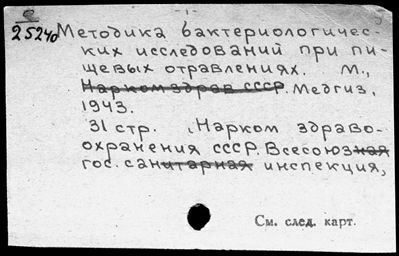 - 1 -
25240 Методика бактериологичес-
ких исследований при пи-
щевых отравлениях. М.,
Наркомздрав СССР. Медгиз,
1943.
31 стр. (Нарком здраво-
охранения СССР. Всесоюзная
гос. санитарная инспекция,
См. след. карт.